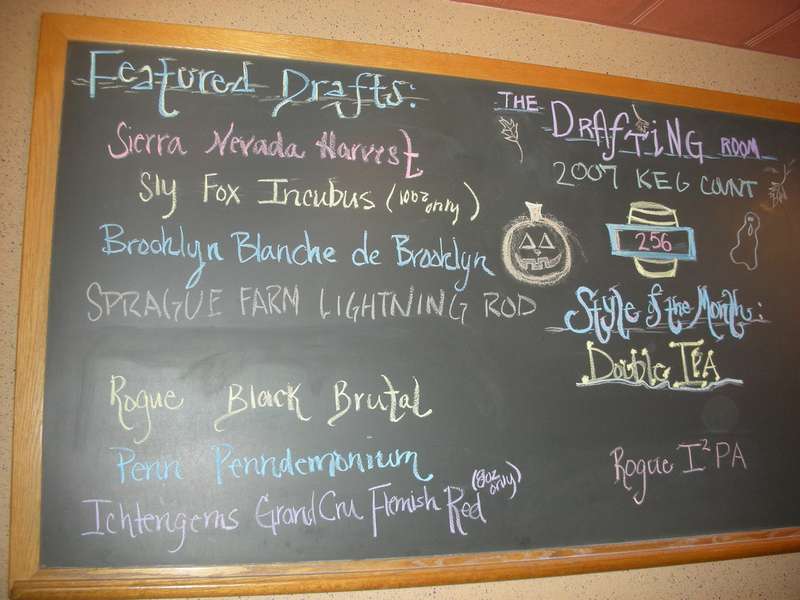 Featured Drafts:
Sierra Nevada Harvest
Sly Fox Incubus (10oz only)
Brooklyn Blanche de Brooklyn
SPRAGUE FARM LIGHTNING ROD
Rogue Black Brutal
Penn Penndemonium
Ichtengems Grand Cru Flemish Red (8oz only)
THE DRAFTING ROOM
2007 KEG COUNT
256
Style of the Month:
Double IPA
Rogue I²PA